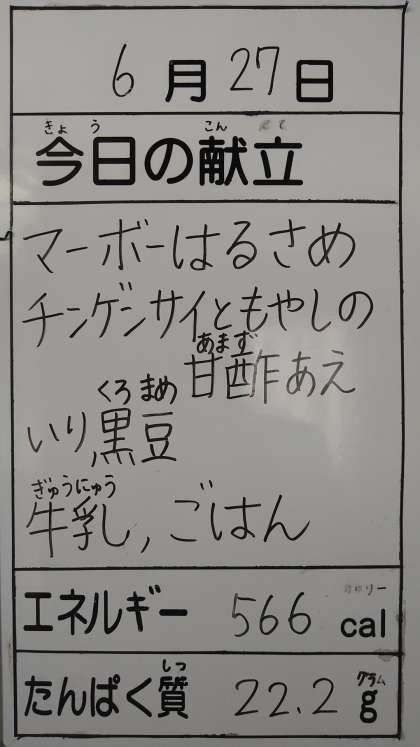 6月27日
きょう こん
今日の献立
マーボーはるさめ
チンゲンサイともやしの
あまず
甘酢あえ
くろ まめ
いり黒豆
ぎゅうにゅう
牛乳, ごはん
エネルギー 566 cal
しつ グラム
たんぱく質 22.2 g